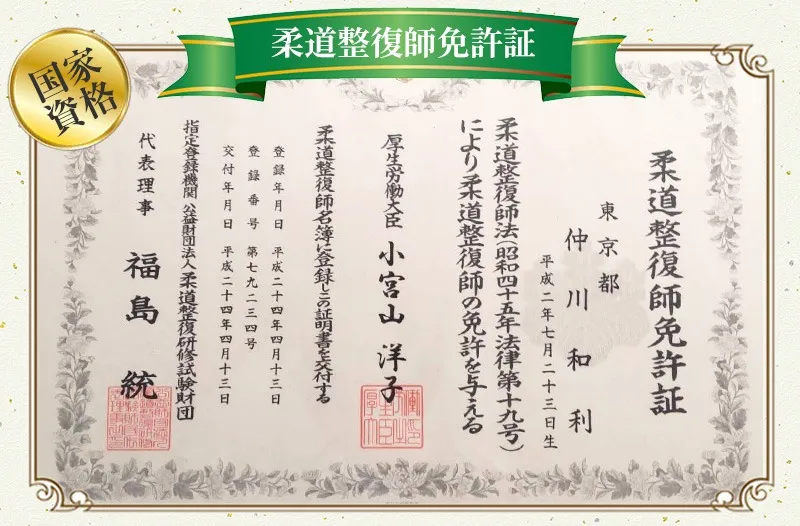 柔道整復師免許証
国家
資格
柔道整復師免許証
東京都
仲川和利
平成二年七月二十三日生
柔道整復師法(昭和四十五年法律第十九号)
により柔道整復師の免許を与える
厚生労働大臣 小宮山洋子
柔道整復師名簿に登録しこの証明書を交付する
登録年月日 平成二十四年四月十三日
登録番号 第七九二三四号
交付年月日 平成二十四年四月十三日
指定登録機関 公益財団法人柔道整復研修試験財団
代表理事 福島統